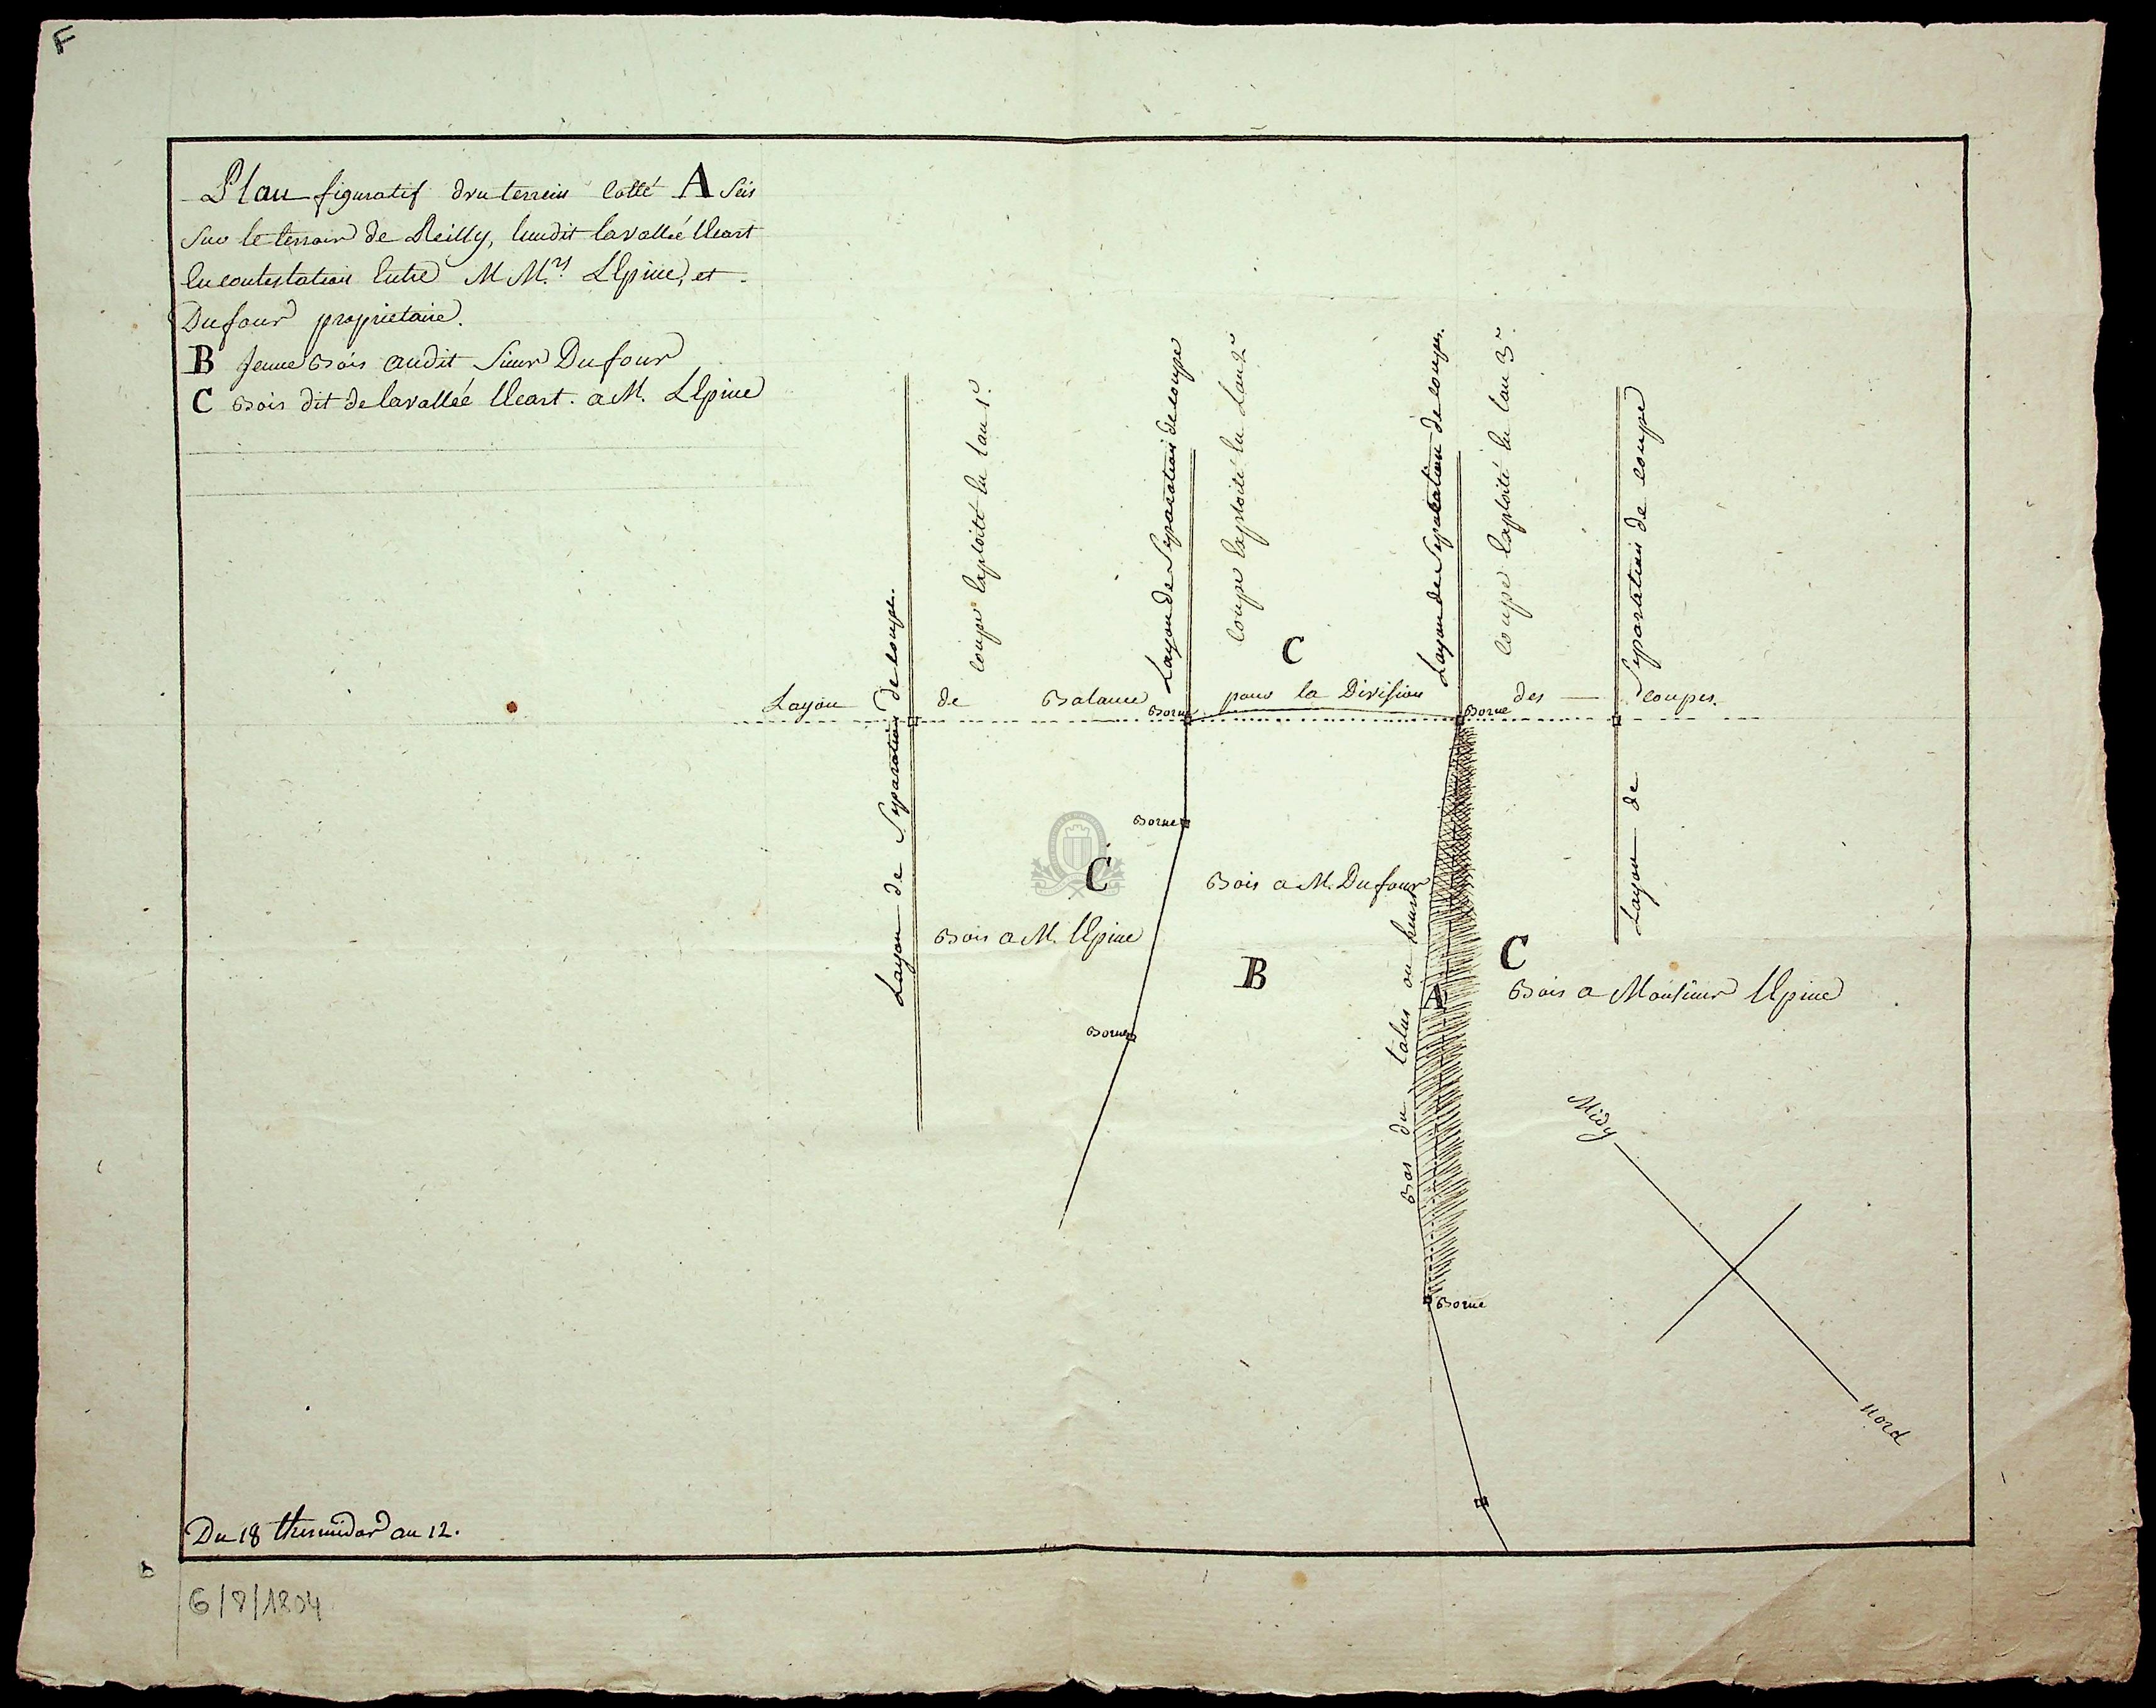 F
Plan figuratif d'un terrein cotté A Sis
Sur le terroir de Reilly, lieudit lavallée
En contestation Entre M M.rs LEpine, et
Dufour propriétaire.
B Jeune Bois audit Sieur Dufour
C Bois dit de lavallée a M. LEpine
Layon de Separation de coupe.
coupe Exploité En l'an 1.r
Layon de Separation de coupe
Coupe Exploité En L'an 2.e
Layon de Separation de coupes.
Coupe Exploité En l'an 3.e
Layon de Separation de coupe
C
Layon de Balance pour la Division des coupes.
Borne
Borne
Borne
C
Bois a M. LEpine
Bois a M. Dufour
B
Bas du talus ou
A
C
Bois a Monsieur LEpine
Borne
Borne
Midy
nord
Du 18 thermidor an 12.
6/8/1804